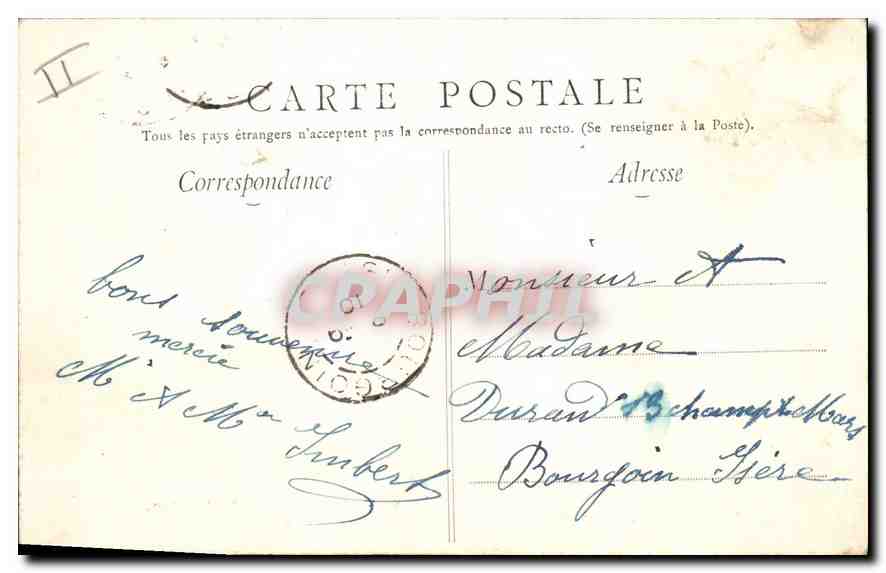 II
CARTE POSTALE
Tous les pays étrangers n'acceptent pas la correspondance au recto. (Se renseigner à la Poste).
Correspondance
Adresse
bons souvenir
mercie
M A Me Imbert
BOURGOIN
CPAPHIL
Monsieur A
Madame
Durand 13 champt Mars
Bourgoin Isère